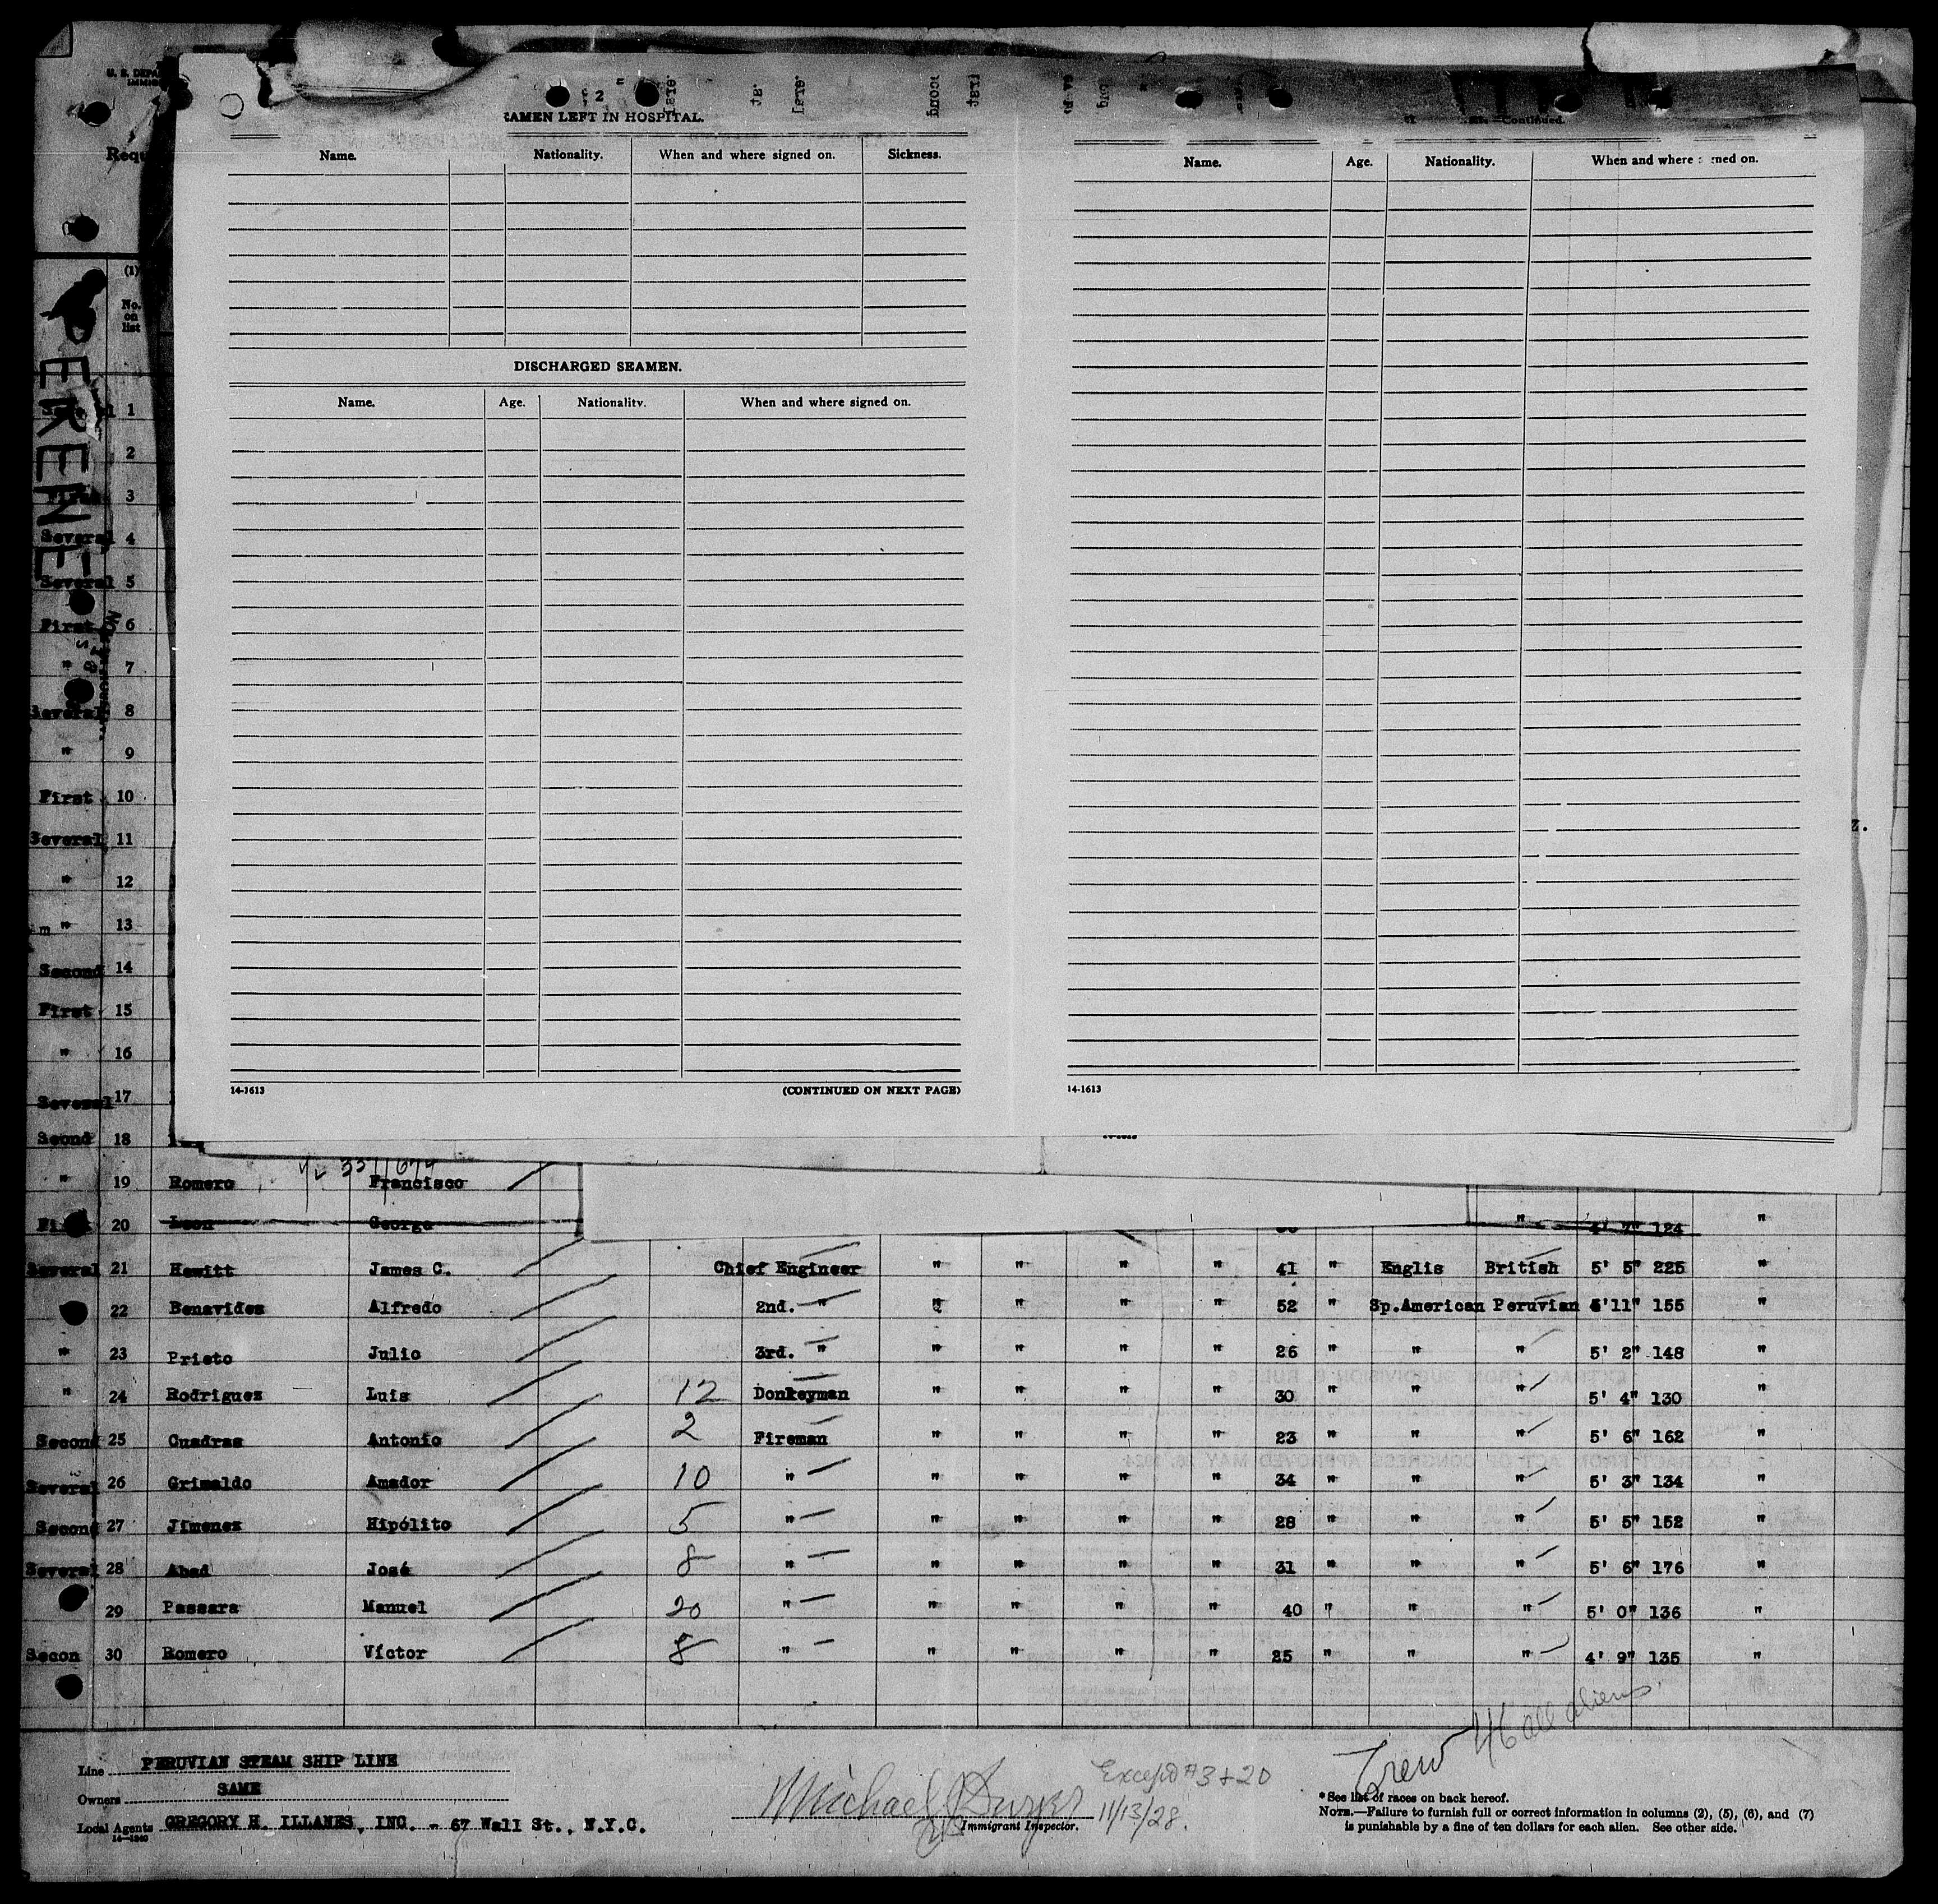 U. S. DEPA
IMMIG
Requ
PERENE
(1)
No.
on
list
SEAMEN LEFT IN HOSPITAL.
Name. Nationality. When and where signed on. Sickness.
DISCHARGED SEAMEN.
Name. Age. Nationality. When and where signed on.
14-1613 (CONTINUED ON NEXT PAGE)
—Continued.
Name. Age. Nationality. When and where signed on.
14-1613
1
2
3
Several 4
Several 5
First 6
" 7
Several 8
" 9
First 10
Several 11
" 12
" 13
Second 14
First 15
" 16
Several 17
Second 18
" 19 Romero Francisco
20 Leon George " 4' 7" 124 "
Several 21 Hewitt James C. Chief Engineer " " " " 41 " Englis British 5' 5" 225 "
22 Benavides Alfredo 2nd. " " " " " 52 " Sp.American Peruvian 5'11" 155 "
" 23 Prieto Julio 3rd. " " " " " 26 " " " 5' 2" 148 "
" 24 Rodriguez Luis 12 Donkeyman " " " " 30 " " " 5' 4" 130 "
Second 25 Cuadras Antonio 2 Fireman " " " " 23 " " " 5' 6" 162 "
Several 26 Grimaldo Amador 10 " " " " " 34 " " " 5' 3" 134 "
Second 27 Jimenez Hipólito 5 " " " " " 28 " " " 5' 5" 152 "
Several 28 Abad José 8 " " " " " 31 " " " 5' 6" 176 "
29 Passara Manuel 20 " " " " " 40 " " " 5' 0" 136 "
Secon 30 Romero Víctor 8 " " " " " 25 " " " 4' 9" 135 "
Crew 46 all aliens.
Line PERUVIAN STEAM SHIP LINE
Owners SAME
Local Agents GREGORY H. ILLANES, INC. - 67 Wall St., N.Y.C.
14-1240
Michael J Dwyer
Immigrant Inspector.
Except #3 + 20
11/13/28.
*See list of races on back hereof.
NOTE.—Failure to furnish full or correct information in columns (2), (5), (6), and (7)
is punishable by a fine of ten dollars for each alien. See other side.